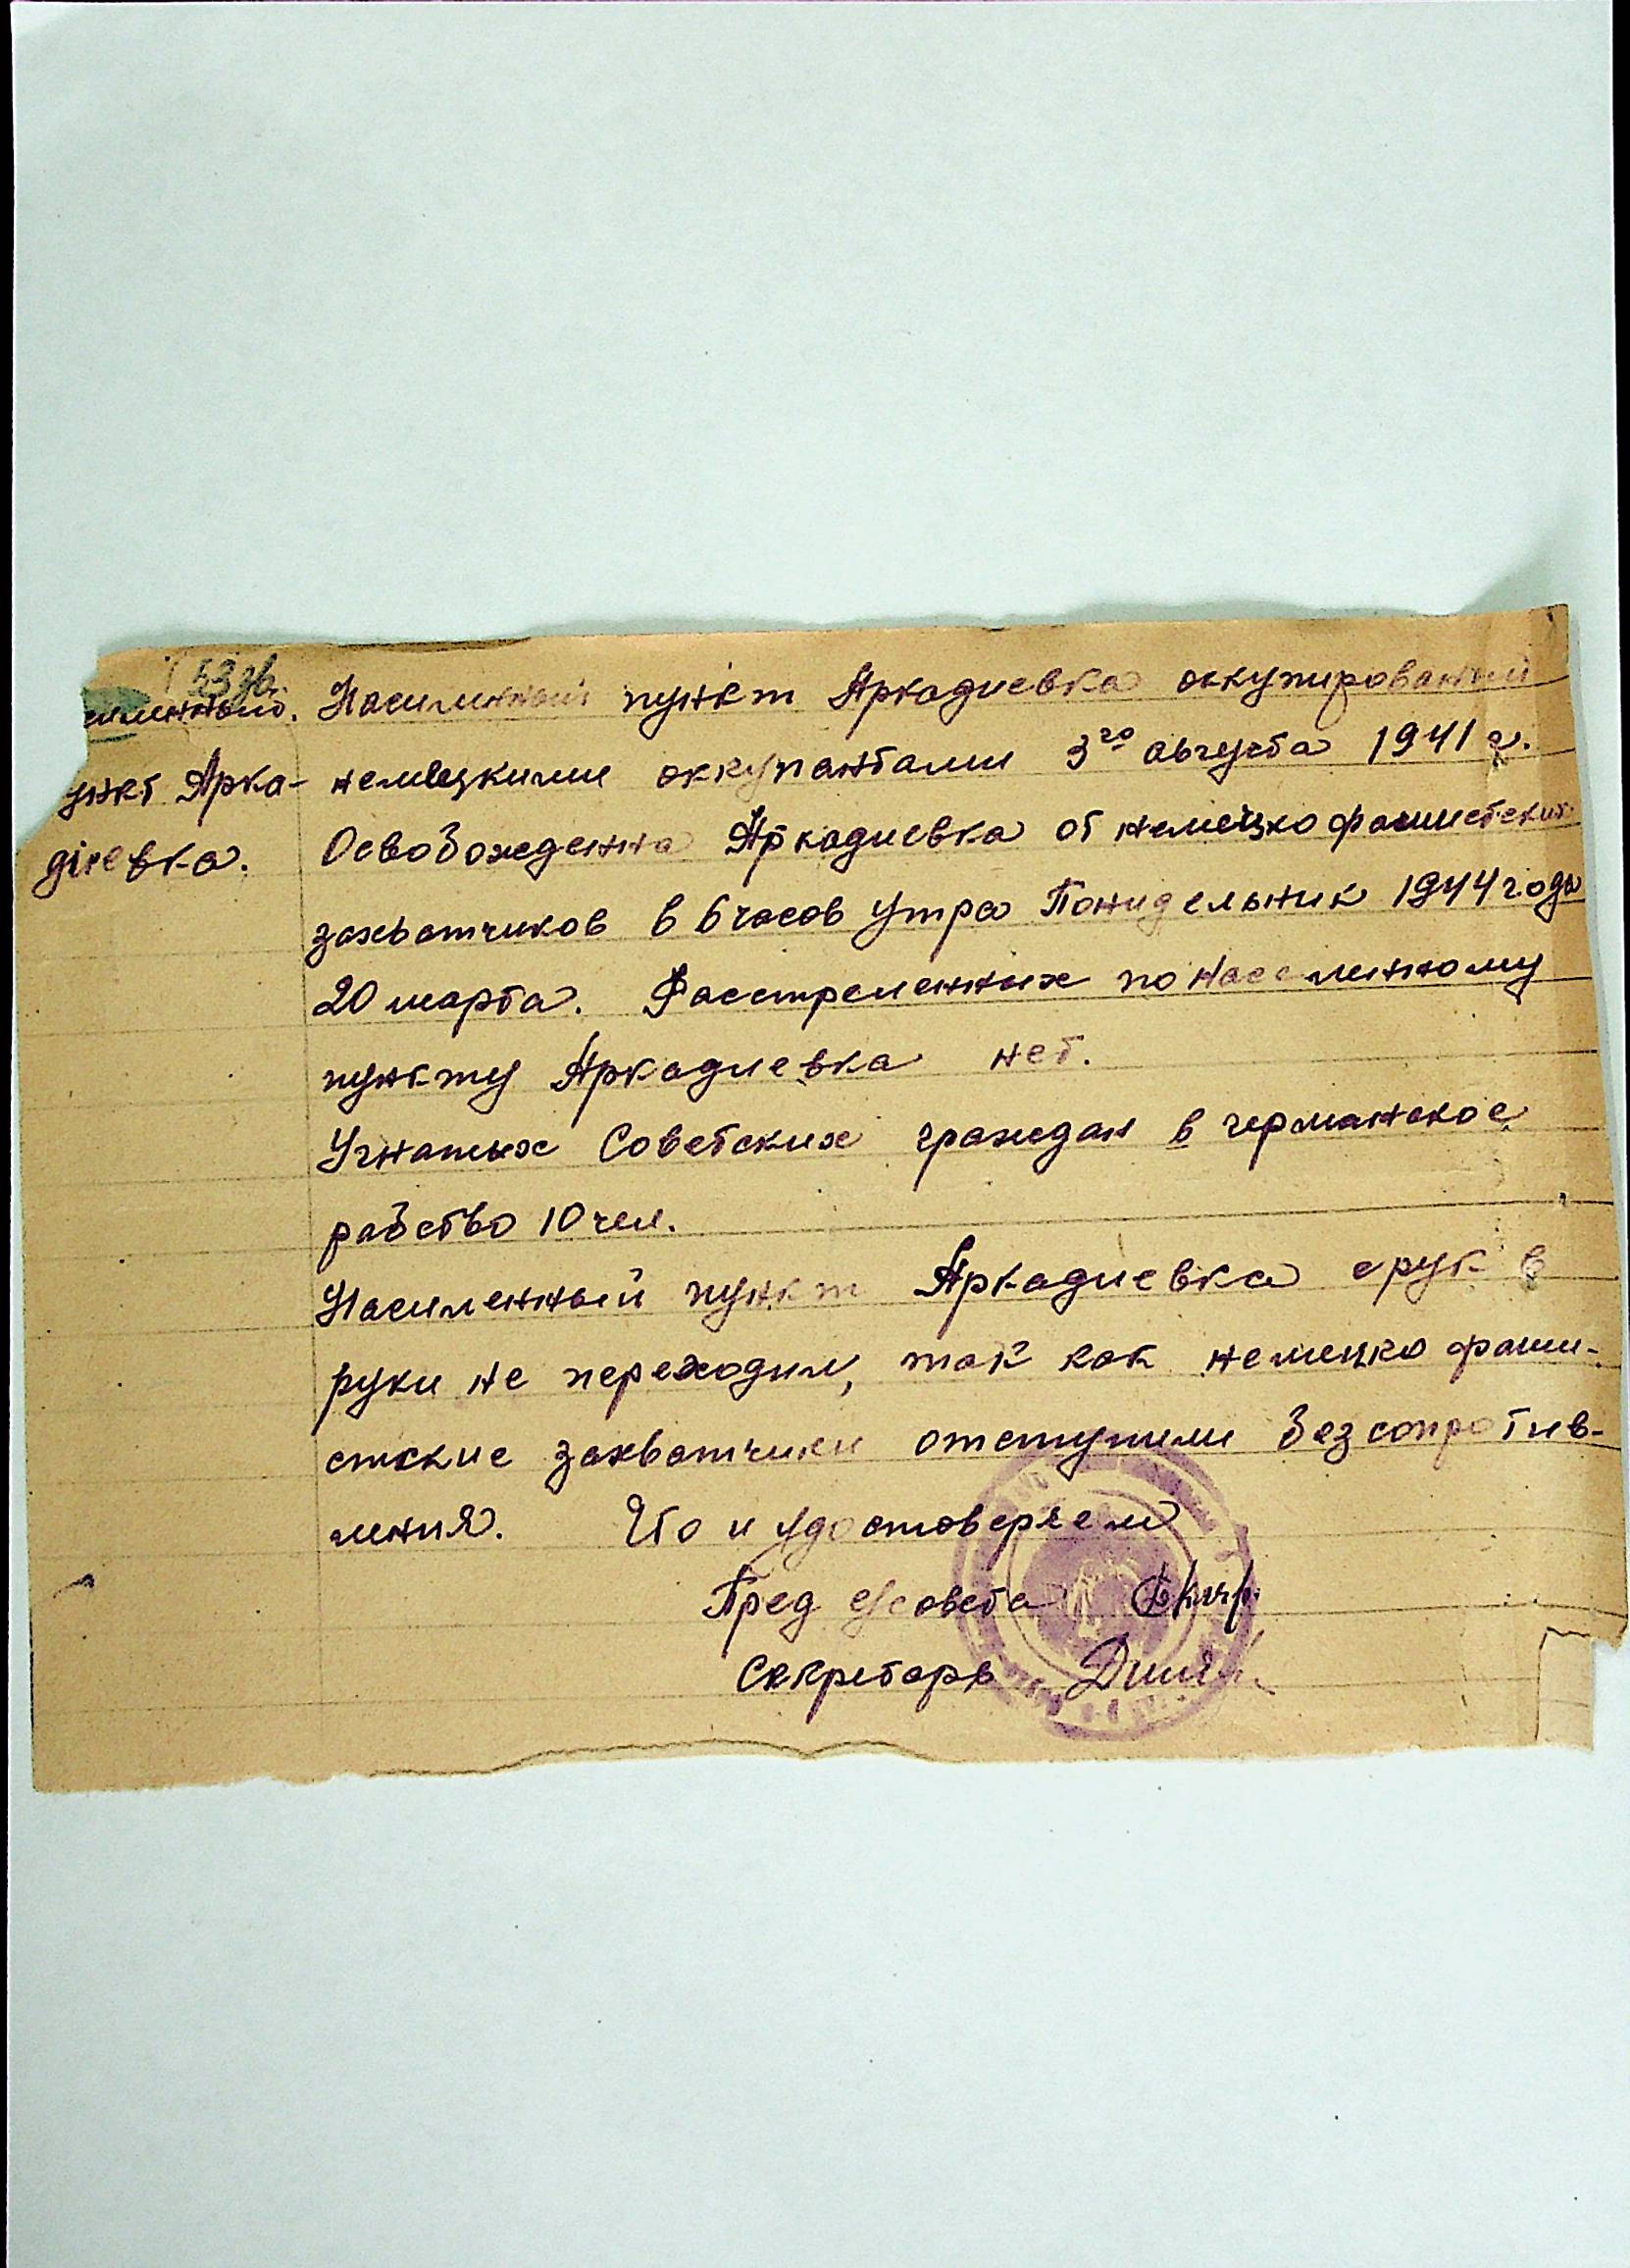 53 зв.
силинный. Насилинный пункт Аркадиевка оккупированый
ункт Арка- немецкими оккупантами 3го августа 1941 г.
діевка. Освобожденна Аркадиевка от немецко фашистских
захватчиков в 6 часов утра Понидельник 1944 года
20 марта. Расстреленных по населинному
пункту Аркадиевка нет.
Угнатых Советских граждан в германское
рабство 10 чел.
Насиленный пункт Аркадиевка с рук в
руки не переходил, так как немецко фаши-
стские захватчики отступили без сопротив-
ления. Что и удостоверяем
Пред с/совета
Секретарь